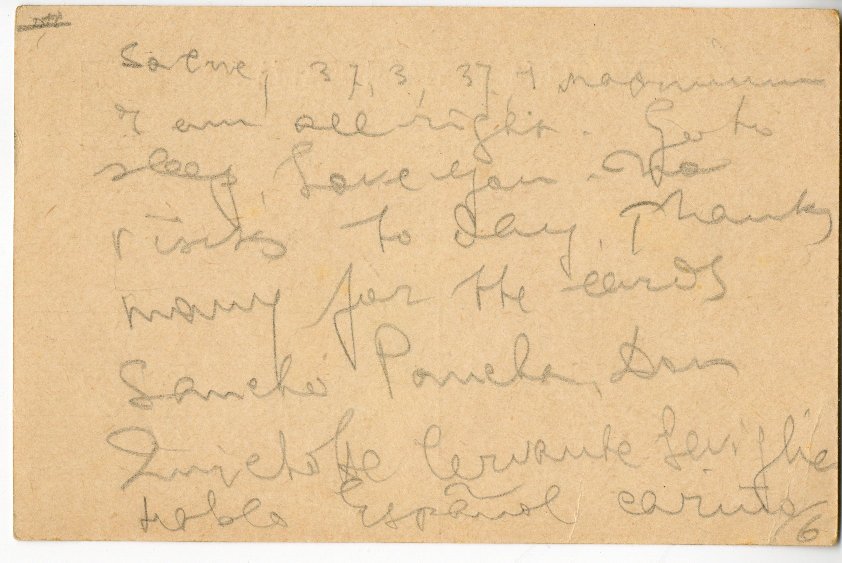 37,3, 37,4 maximum
I am all right. Go to
sleep, Love you. No
visits to day, Thanks
many for the cards
Sancho Pancha, Don
Quichotte Cervante Seviglie
hablo Español carino
6